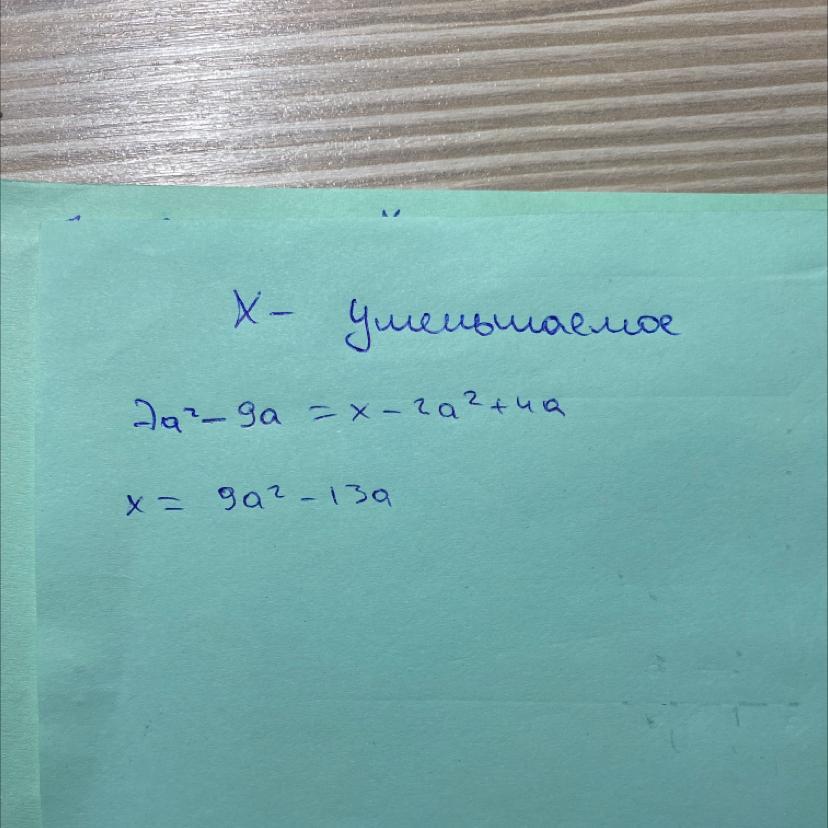 x - уменьшаемое
7a² - 9a = x - 2a² + 4a
x = 9a² - 13a